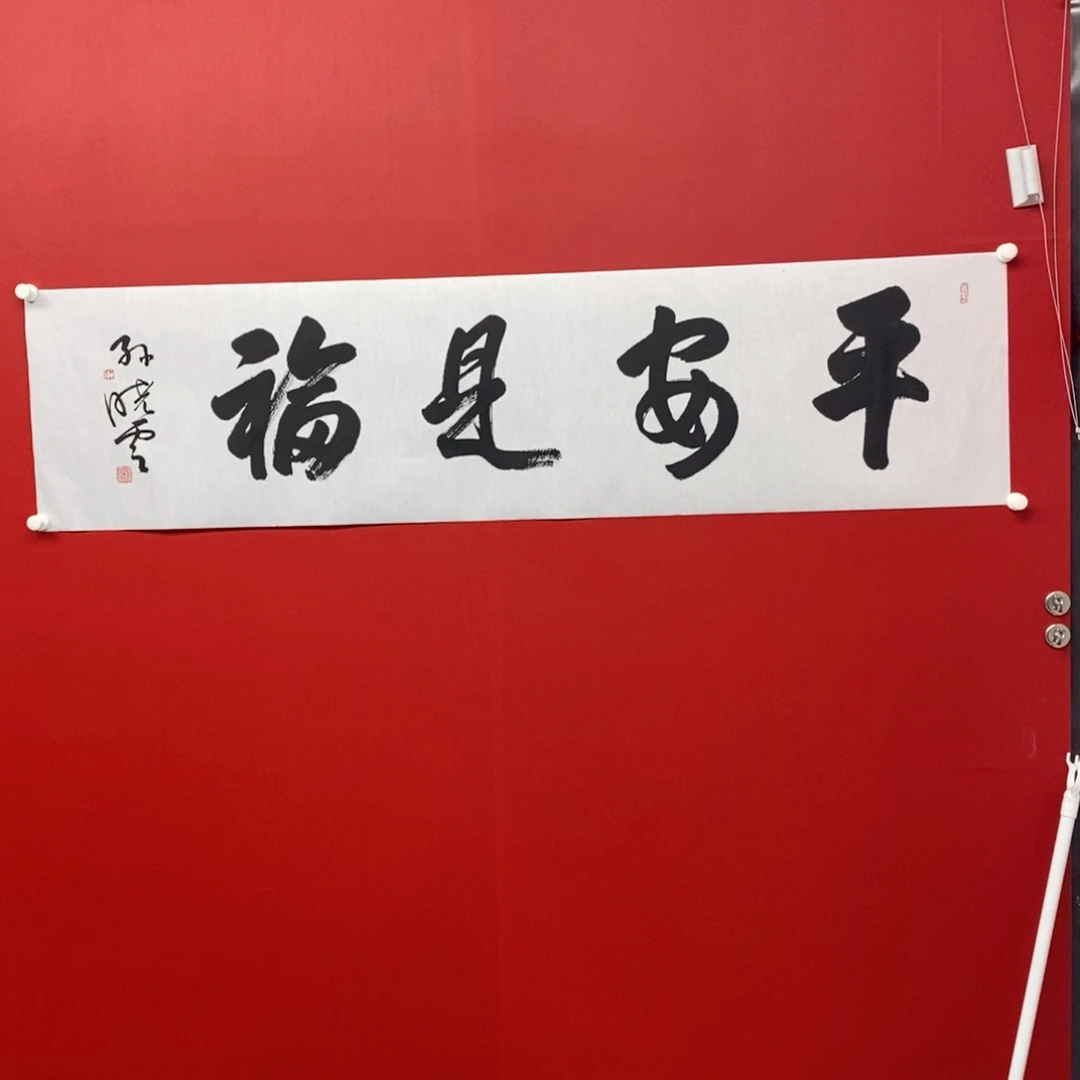 平安是福
孙晓云